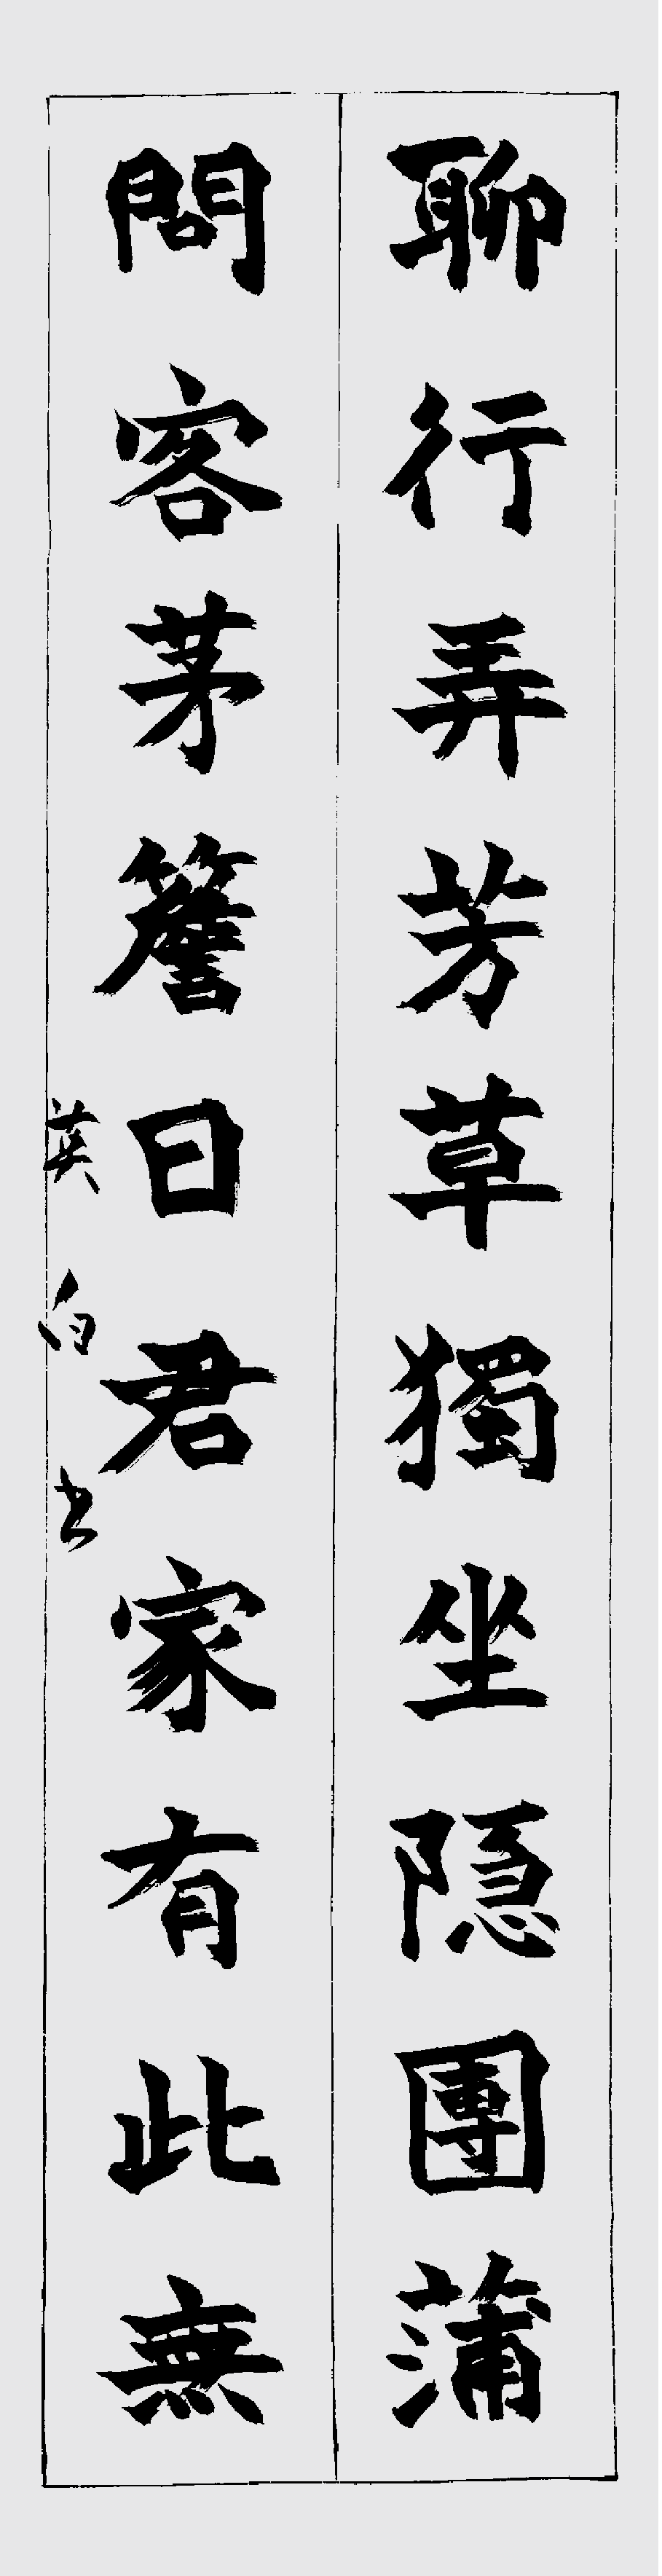 聊行弄芳草獨坐隱團蒲
問客茅簷日君家有此無
英白书